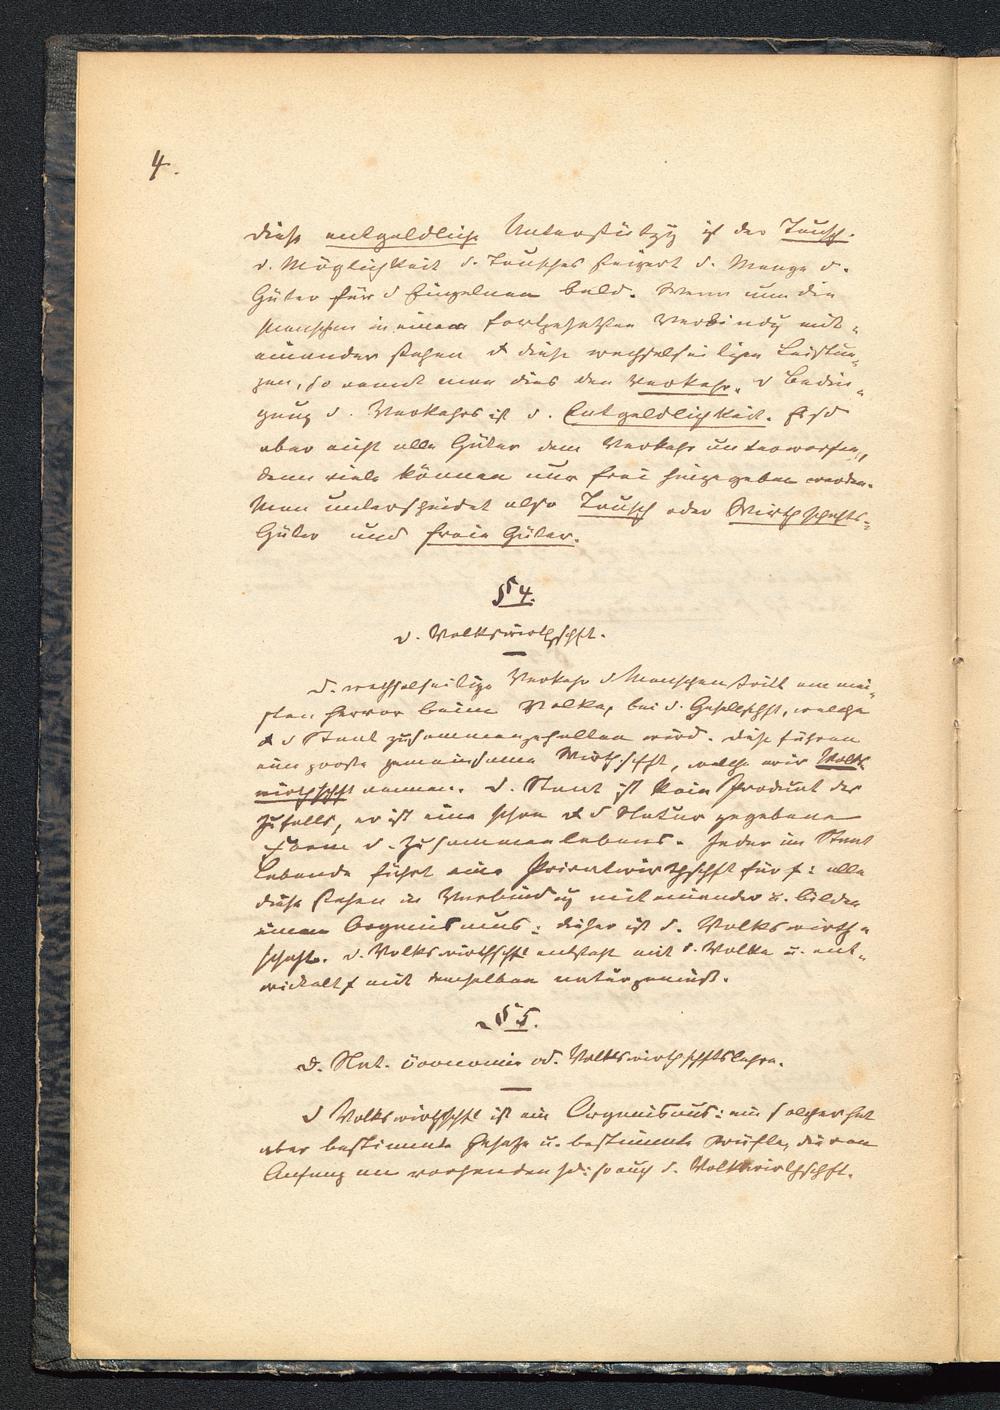 4.
diese entgeldliche Unterstützg ist der Tausch.
d. Möglichkeit d. Tausches steigert d. Menge d.
Güter für d Einzelnen bald. Wenn nun die
Menschen in einer fortgesetzten Verbindg mit-
einander stehen & diese wechselseitigen Leistun-
gen, so nennt man dies den Verkehr. d Bedin-
gung d. Verkehrs ist d. Entgeldlichkeit. Es sd
aber nicht alle Güter dem Verkehr unterworfen,
denn viele können nur frei hingegeben werden.
Man unterscheidet also Tausch oder Wirthschafts-
Güter und freie Güter.
§ 4.
d. Volkswirthschft.
d. wechselseitige Verkehr d Menschen tritt am mei-
sten hervor beim Volke, bei d. Gesellschft, welche
d Staat zusammengehalten wird. diese führen
eine große gemeinsame Wirthschft, welche wir Volks-
wirthschft nennen. d. Staat ist kein Produkt des
Zufalls, er ist eine schon d Natur gegebene
Form d. Zusammenlebens. Jeder im Staat
Lebende führt eine Privatwirthschft für s: alle
diese stehen in Verbindug miteinander u. bilden
einen Organismus: dieser ist d. Volkswirth-
schaft. d. Volkswirthschft entsteht mit d. Volke u. ent-
wickelt s mit demselben naturgemäß.
§ 5.
D. Nat. öconomie od. Volkswirthschftslehre.
d Volkswirthschft ist ein Organismus: ein solcher hat
aber bestimmte Gesetze u. bestimmte die von
Anfang an vorhanden sd: so auch d. Volkswirthschft.